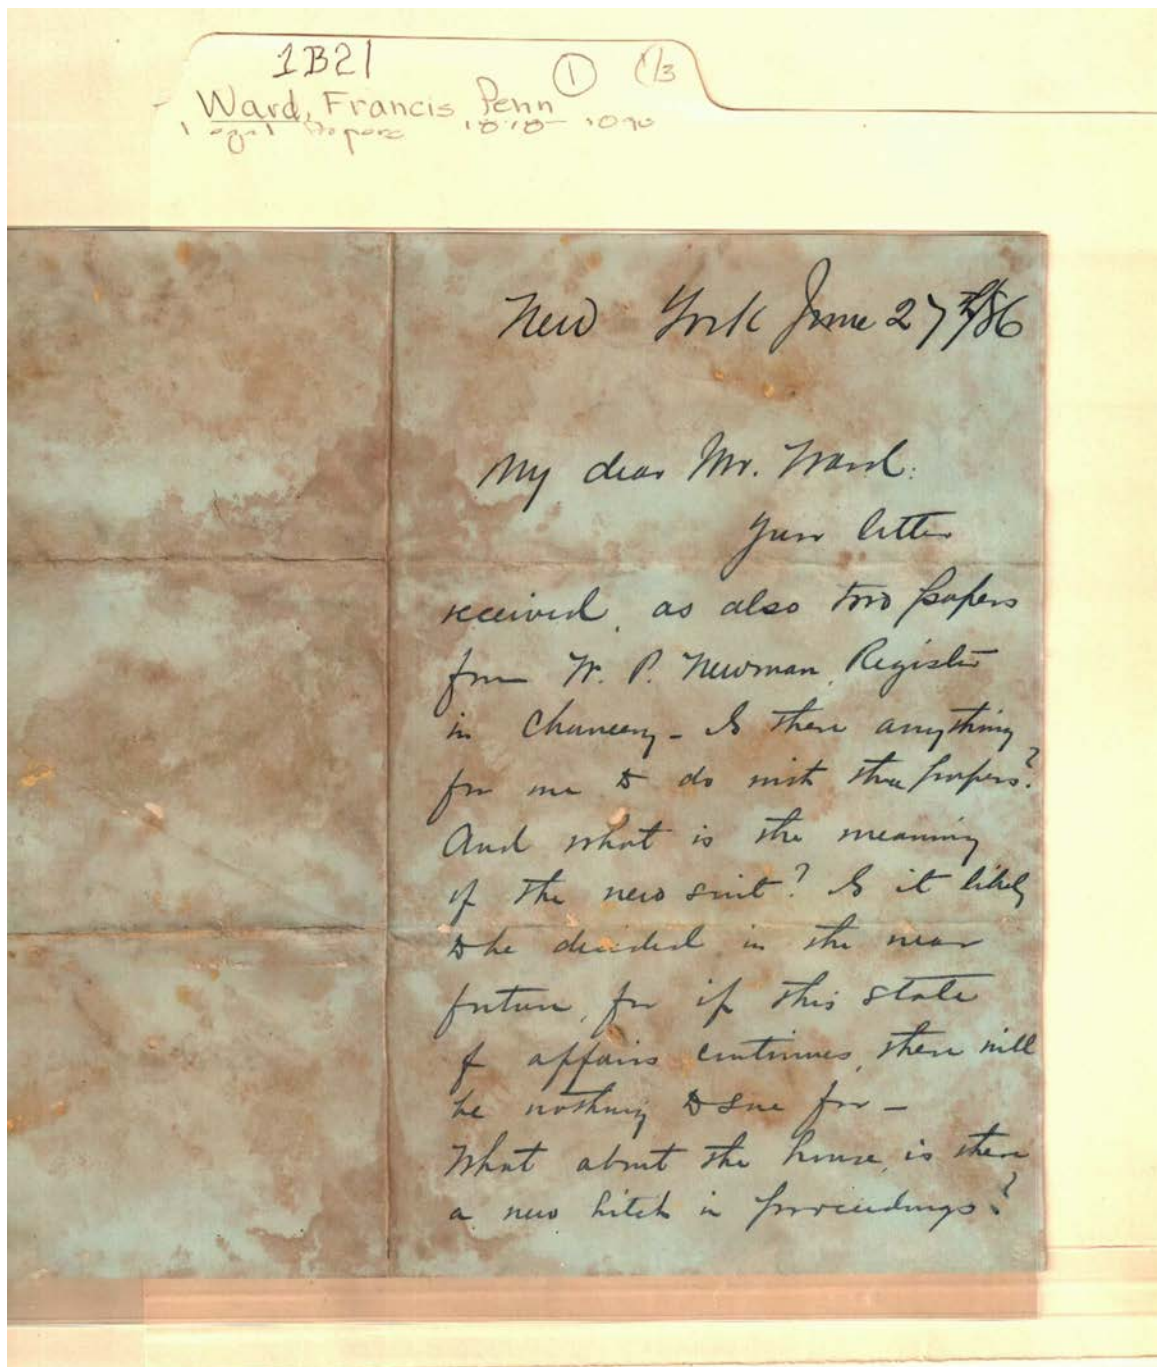 1B21
① (1/3
Ward, Francis Penn
Legal Papers
New York June 27th/86
My dear Mr. Ward:
Your letter
received, as also two papers
from W. P. Newman, Register
in Chancery - Is there anything
for me to do with these papers?
And what is the meaning
of the new suit? Is it likely
to be decided in the near
future, for if this state
of affairs continues, there will
be nothing to sue for -
What about the house, is there
a new hitch in proceedings?